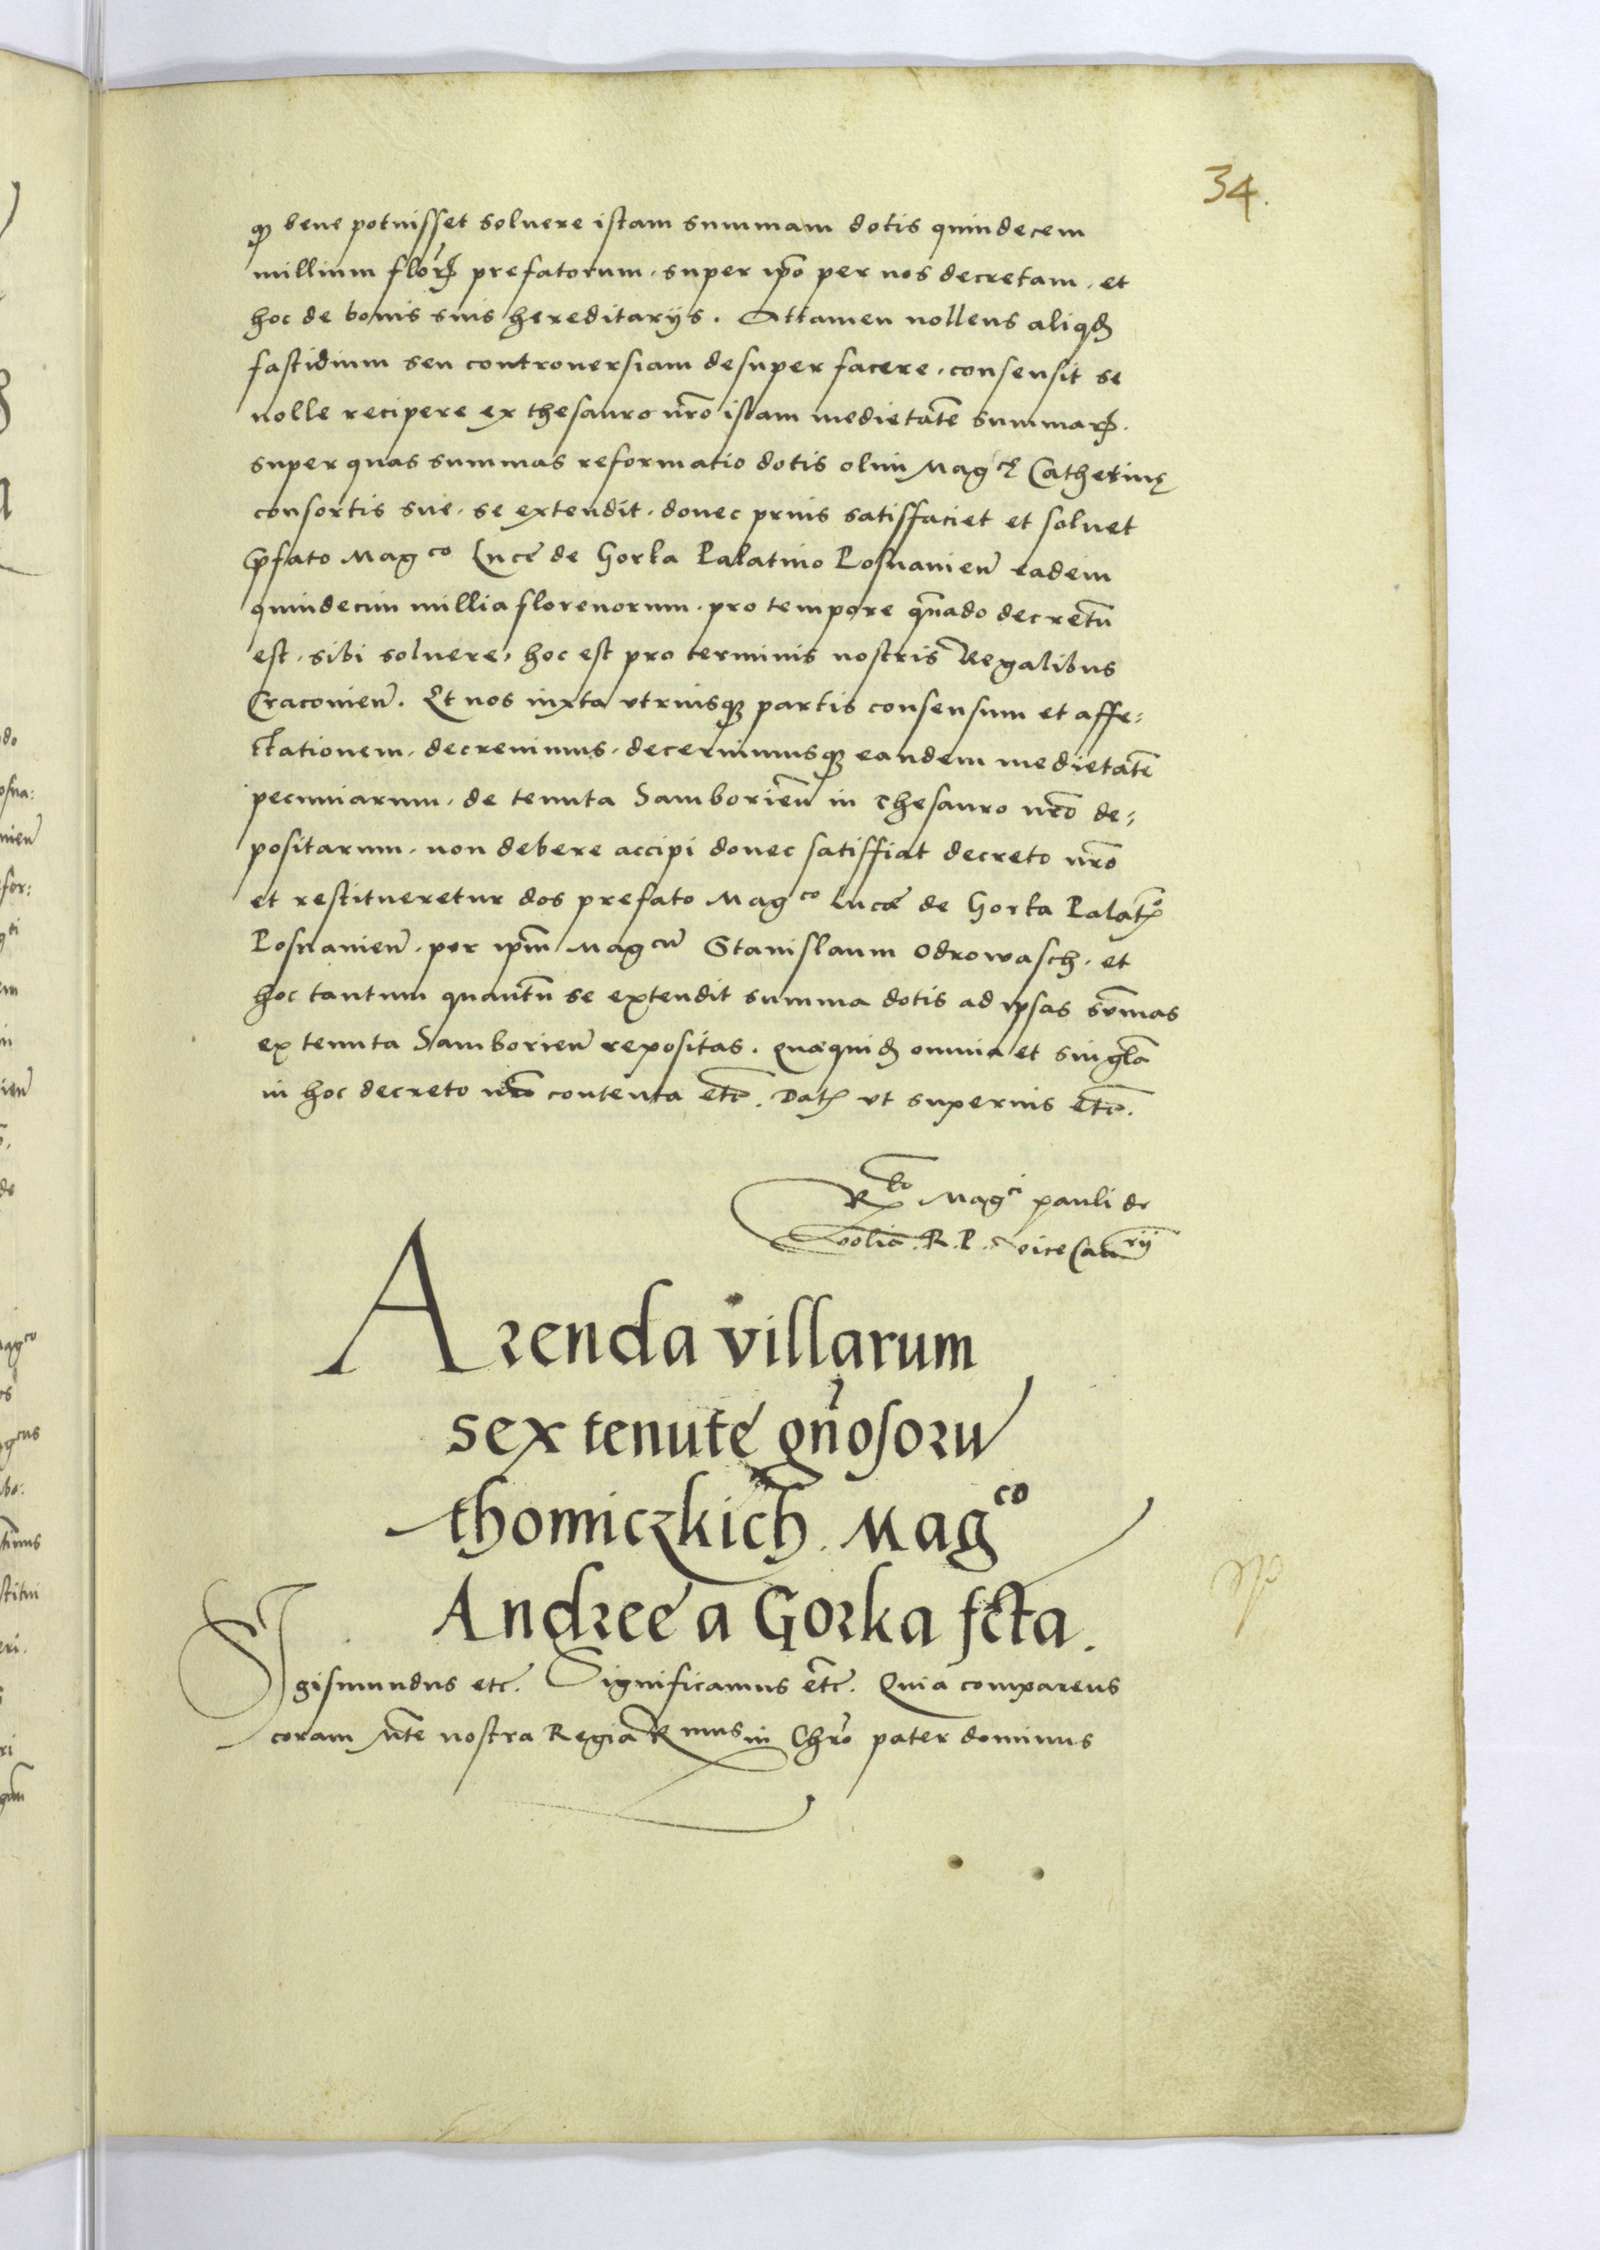 34.
qȝ bene potuisset soluere istam summam dotis quindecem
millium florꝝ prefatorum, super ip̃o per nos decretam, et
hoc de bonis suis hereditarijs. Attamen nollens aliqđ
fastidium seu controuersiam desuper facere, consensit se
nolle recipere ex thesauro nr̃o istam medietatẽ summarꝝ.
super quas summas reformatio dotis olim Magcę Catherinę
consortis sue, se extendit, donec prius satisffaciet et soluet
p̃fato Magco Luce de Gorka Palatino Posnanien̄ eadem
quindecim millia florenorum, pro tempore qn̄ado decretū
est, sibi soluere, hoc est pro terminis nostris Regalibus
Cracouien̄. Et nos iuxta vtriusqȝ partis consensum et affe:
ctationem, decreuimus, decernimusqȝ eandem medietatẽ
pecuniarum, de tenuta Samborien̄ in thesauro nr̃o de:
positarum, non debere accipi donec satisffiat decreto nr̃o
et restitueretur dos prefato Magco Lucæ de Gorka Palatꝭo
Posnanien̄, per ip̃m Magcū Stanislaum Odrowasch, et
hoc tantum quantū se extendit summa dotis ad ipsas sūmas
ex tenuta Samborien̄ repositas. quæquiđ omnia et singl̃a
in hoc decreto nr̃o contenta etc̃. Datꝭ vt superius etc̃.
Rto Magci Pauli de
Volia. R. P. ViceCanrij
Arenda villarum
sex tenute gn̄osorū
thomiczkich. Magco
Andree a Gorka fcta.
Sigismundus etc. Significamus etc̃. Quia comparens
coram Mt̃e nostra Regia Rmus in Chr̃o pater dominus